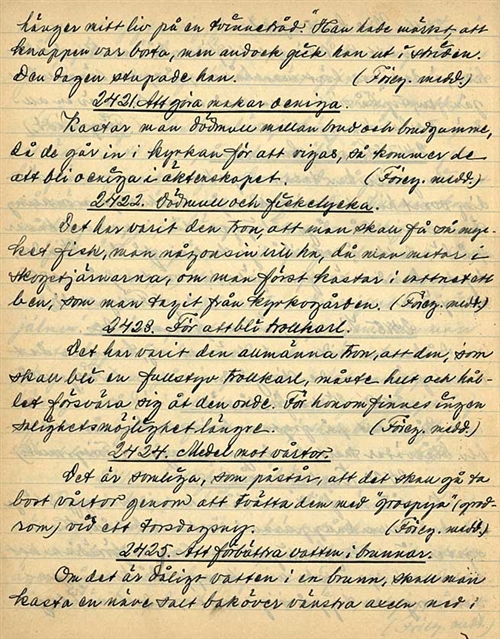 hänger mitt liv på en tvinnetråd." Han hade märkt, att
knappen var borta, men ändock gick han ut i striden.
Den dagen stupade han. (Föreg. medd.)
2421. Att göra makar oeniga.
Kastar man dödmull mellan brud och brudgumme,
då de går in i kyrkan för att vigas, så kommer de
att bli oeniga i äktenskapet. (Föreg. medd.)
2422. Dödmull och fiskelycka.
Det har varit den tron, att man skall få så myc-
ket fisk, man någonsin vill ha, då man metar i
skogstjärnarna, om man först kastar i vattnet ett
ben, som man tagit från kyrkogården. (Föreg. medd.)
2423. För att bli trollkarl.
Det har varit den allmänna tron, att den, som
skall bli en fullstyv trollkarl, måste helt och hål-
let försvära sig åt den onde. För honom finnes ingen
salighetsmöjlighet längre. (Föreg. medd.)
2424. Medel mot vårtor.
Det är somliga, som påstår, att det skall gå ta
bort vårtor genom att tvätta dem med "grospyja" (grod-
rom) vid ett torsdagsny. (Föreg. medd.)
2425. Att förbättra vatten i brunnar.
Om det är dåligt vatten i en brunn, skall man
kasta en näve salt baköver vänstra axeln ned i